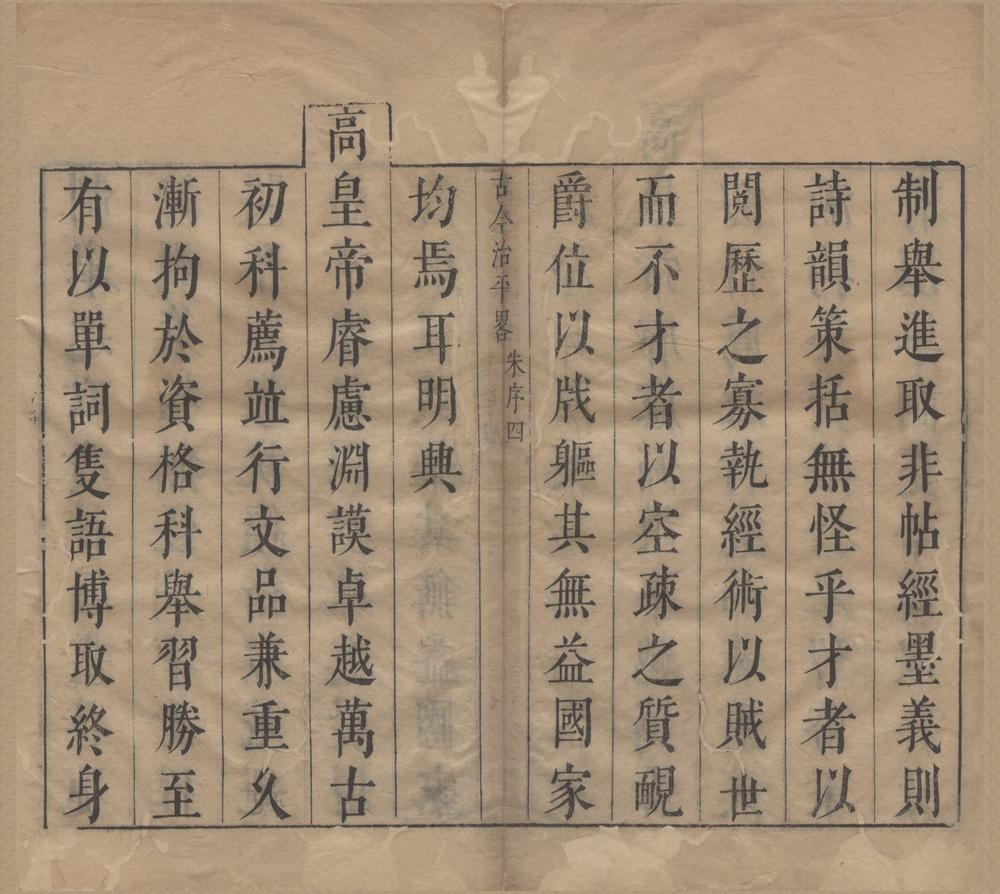 制舉進取非帖經墨義則
詩韻策括無怪乎才者以
閱歷之寡執經術以賊世
而不才者以空疎之質靦
爵位以戕軀其無益國家
古今治平畧
朱序四
均焉耳明興
高皇帝睿慮淵謨卓越萬古
初科薦竝行文品兼重久
漸拘於資格科舉習勝至
有以單詞隻語博取終身